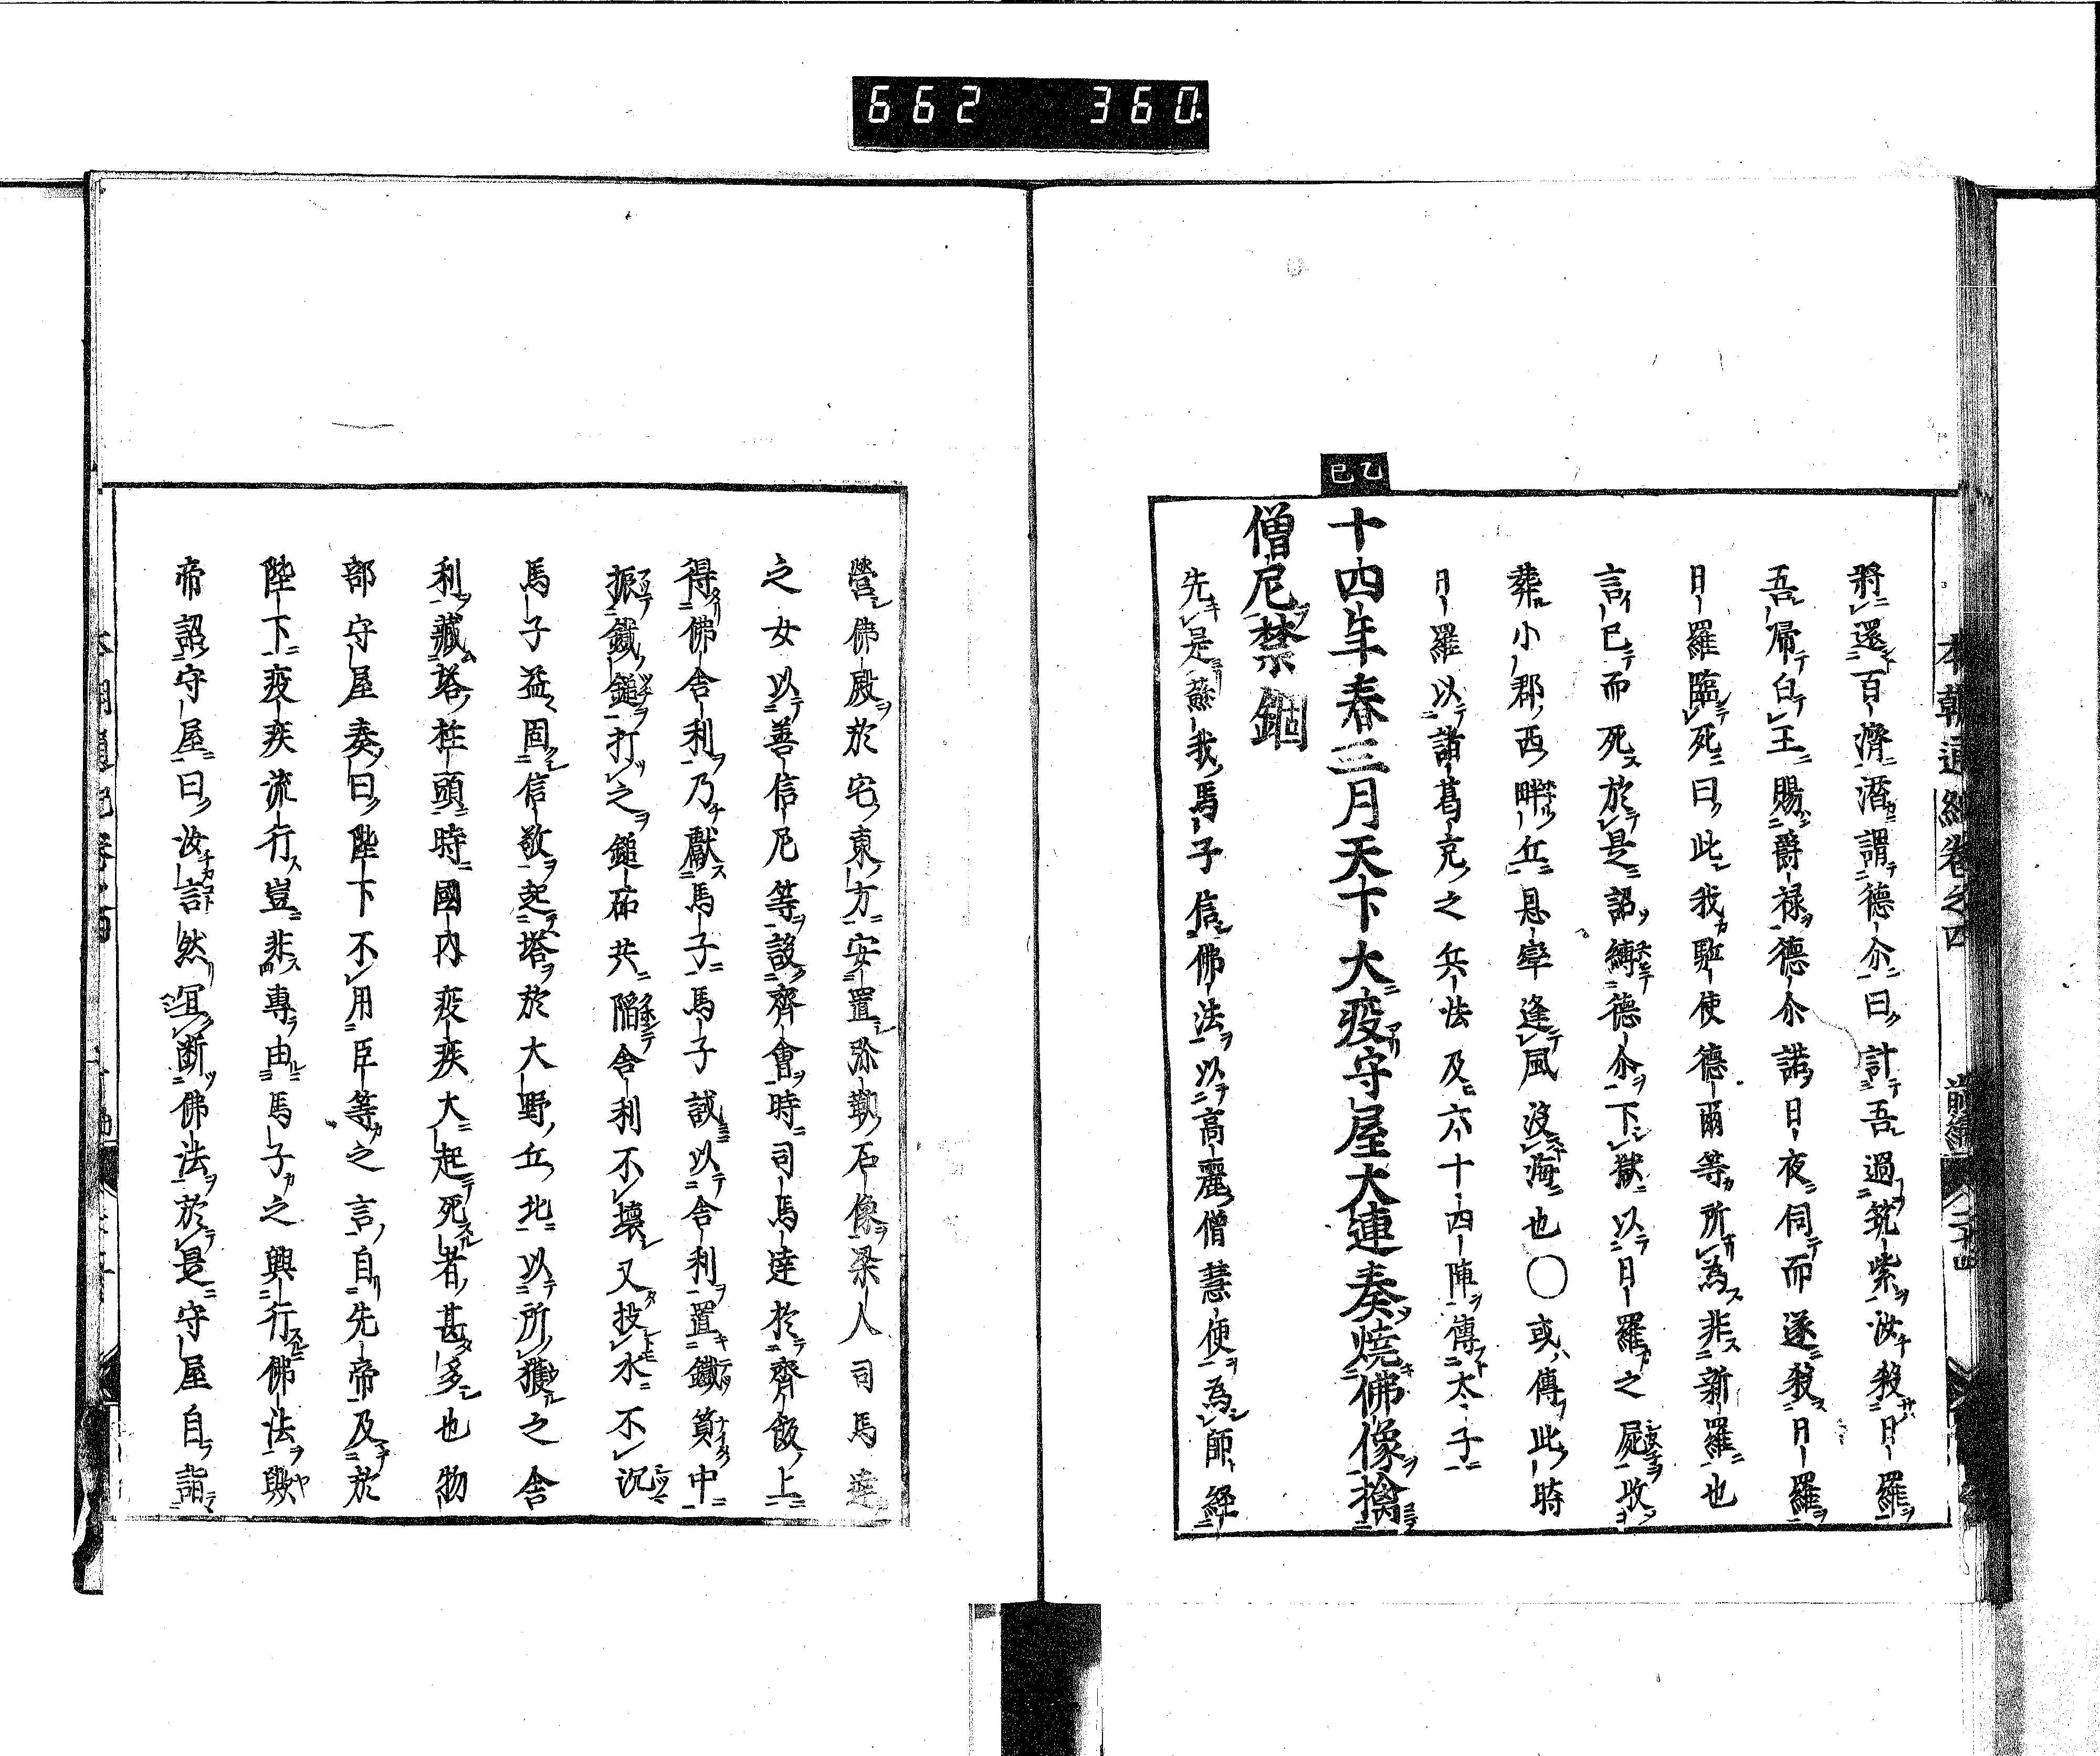 662 360
本朝通紀卷之四 前編
將還百濟潛謂德尒曰計吾過筑紫汝殺日羅
吾帰白王賜爵禄德尒諾日夜伺而遂殺日羅
日羅臨死曰此我駈使德爾等所為非新羅也
言已而死於是詔縛德尒下獄以日羅之屍收
葬小郡西畔丘恩率逢風沒海也〇或傳此時
日羅以諸葛亮之兵法及六十四陣傳太子
乙巳
十四年春三月天下大疫守屋大連奏焼佛像擒
僧尼禁錮
先是蘇我馬子信佛法以高麗僧慧便為師経
營佛殿於宅東方安置弥勒石像梁人司馬達
之女以善信尼等設齊會時司馬達於齊飯上
得佛舎利乃獻馬子馬子試以舎利置鐵質中
振鐵鎚打之鎚砧共陷舎利不壊又投水不沉
馬子益固信敬起塔於大野丘北以所獲之舎
利藏塔柱頭時國内疫疾大起死者甚多也物
部守屋奏曰陛下不用臣等之言自先帝及於
陛下疫疾流行豈非専由馬子之興行佛法歟
帝詔守屋曰汝言然冝断佛法於是守屋自詣